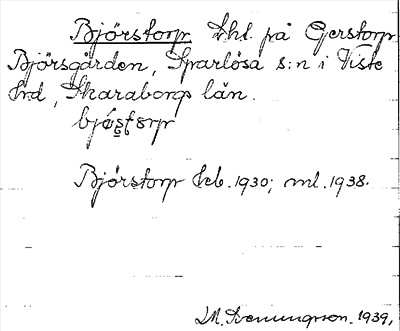 Björstorp Lht på Gerstorp
Björsgården, Sparlösa s:n i Viste
hrd, Skaraborgs län.
Björstorp kb. 1930; ml. 1938.
M. Svenungsson. 1939.